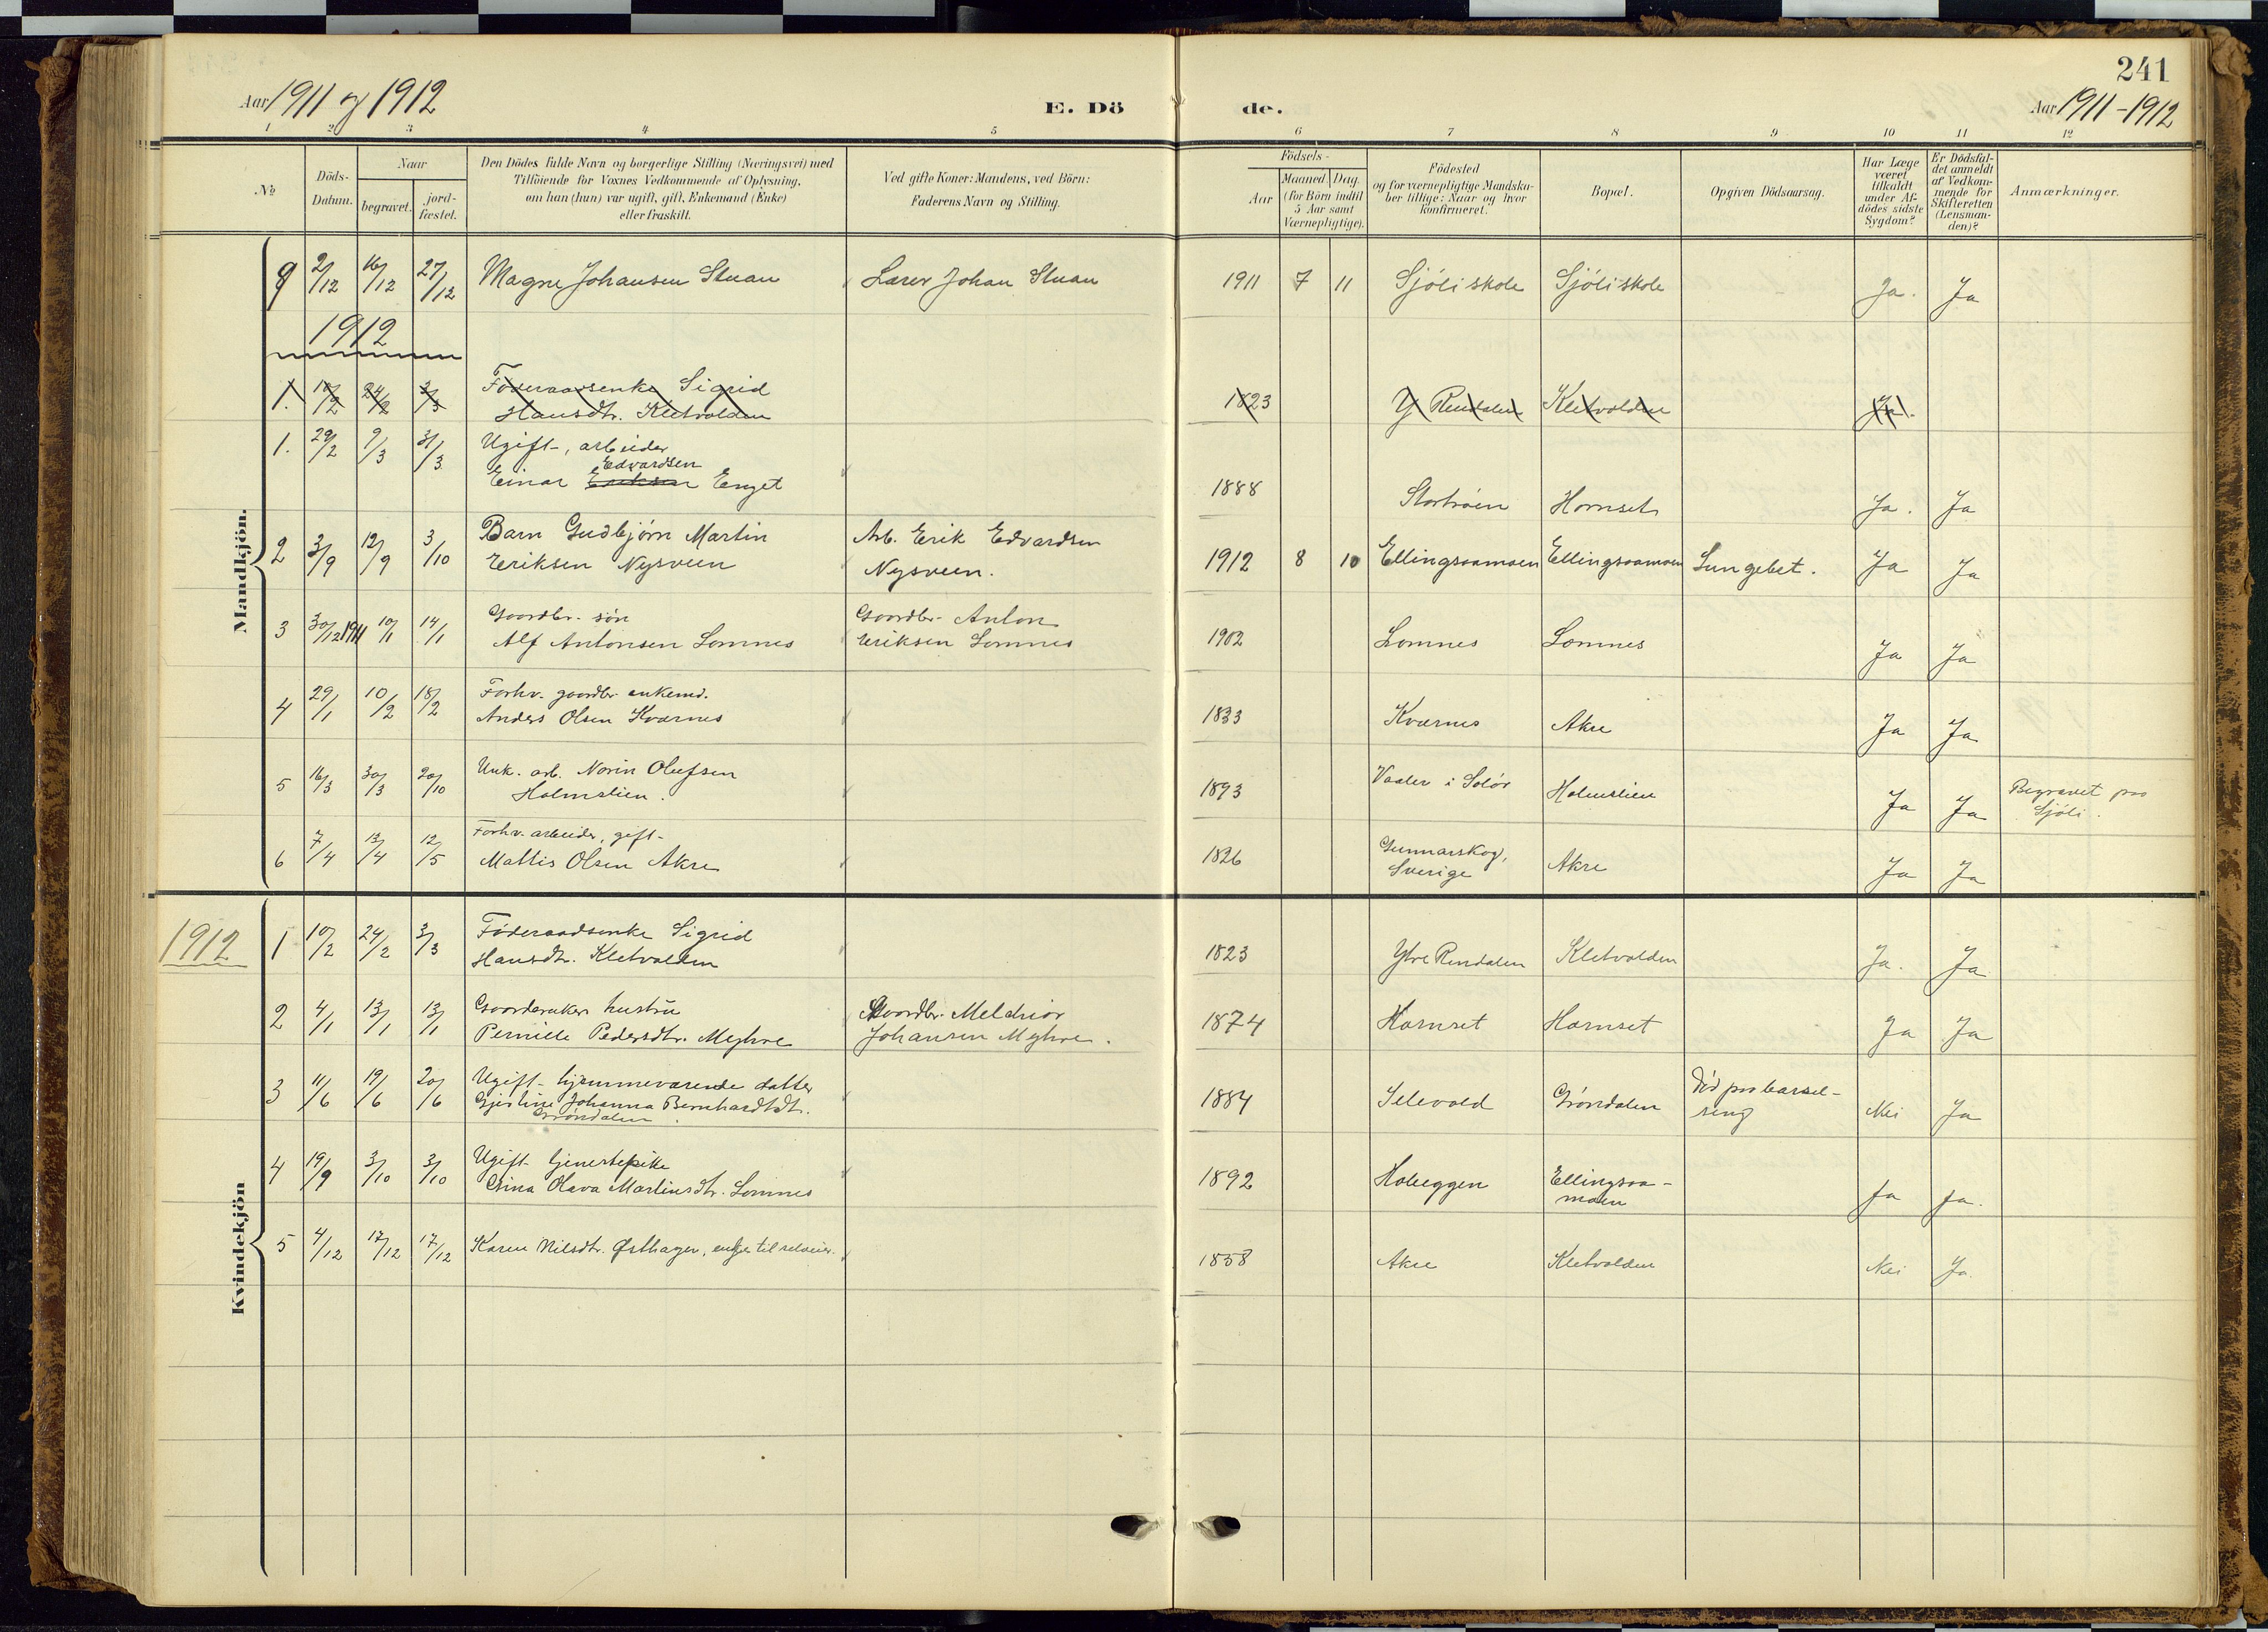 241
Aar 1911 og 1912
E. Dö
de.
Aar 1911-1912
1 2 3 4 5 6 7 8 9 10 11 12
No
Döds-Datum.
Naar
begravet.
jord-fæstet.
Den Dödes fulde Navn og borgerlige Stilling (Næringsvei) med
Tilföiende for Voxnes Vedkommende af Oplysning,
om han (hun) var ugift, gift, Enkemand (Enke)
eller fraskilt.
Ved gifte Koner: Mandens, ved Börn:
Faderens Navn og Stilling.
Födsels-
Aar
Maaned. Dag.
(for Börn indtil
5 Aar samt
Værnepligtige).
Födested
og for værnepligtige Mandska-
ber tillige: Naar og hvor
konfirmeret.
Bopæl.
Opgiven Dödsaarsag.
Har Læge
været
tilkaldt
under Af-
dödes sidste
Sygdom?
Er Dödsfal-
det anmeldt
af Vedkom-
mende for
Skifteretten
(Lensman-
den)?
Anmærkninger.
Mandkjön.
9 2/12 16/12 27/12 Magne Johansen Stuan Lærer Johan Stuan 1911 7 11 Sjöliskole Sjöliskole Ja. Ja
1912
1. 10/2 24/2 3/3 Föderaadsenke Sigrid
Hansdtr. Kletvolden 1823 Y Rendalen Kletvolden Ja.
1. 29/2 9/3 31/3 Ugift, arbeider
Edvardsen
Einar Eriksen Enget 1888 Stortröen Hornset Ja. Ja
2 3/9 12/9 3/10 Barn Gudbjörn Martin Arb. Erik Edvardsen
Eriksen Nysveen Nysveen. 1912 8 10 Ellingsaamoen Ellingsaamoen Lungebet. Ja Ja
3 30/12 1911 10/1 14/1 Gaardbr. sön Gaardbr. Anton
Alf Antonsen Lomnes Eriksen Lomnes 1902 Lomnes Lomnes Ja Ja
4 29/1 10/2 18/2 Forhv. gaardbr. enkemd.
Anders Olsen Kværnes 1833 Kværnes Akre Ja Ja
5 16/3 30/3 20/10 Unk. arb. Norin Olufsen
Holmslien. 1893 Vaaler i Solör Holmslien Ja Ja Begravet paa
Sjöli.
6 7/4 13/4 12/5 Forhv. arbeider, gift-
Mattis Olsen Akre 1826 Gunnarskog,
Sverige Akre Ja Ja
1912
Kvindekjön
1 10/2 24/2 3/3 Föderaadsenke Sigrid
Hansdtr. Kletvolden 1823 Ytre Rendalen Kletvolden Ja. Ja
2 4/1 13/1 13/1 Gaardbrukers hustru Gaardbr. Melchior
Pernille Pedersdtr. Myhre Johansen Myhre. 1874 Hornset Hornset Ja Ja
3 11/6 19/6 20/6 Ugift hjemmeværende datter
Gjertine Johanna Bernhardtdtr.
Gröndalen. 1884 Selevold Gröndalen Död paa barsel-
seng Nei Ja
4 19/9 3/10 3/10 Ugift tjenestepike
Gina Olava Martinsdtr. Lomnes 1892 Haheggen Ellingsaa-
moen Ja Ja.
5 4/12 17/12 17/12 Karen Nilsdtr. Østhagen, enke til selveier. 1858 Akre Kletvolden Nei Ja.